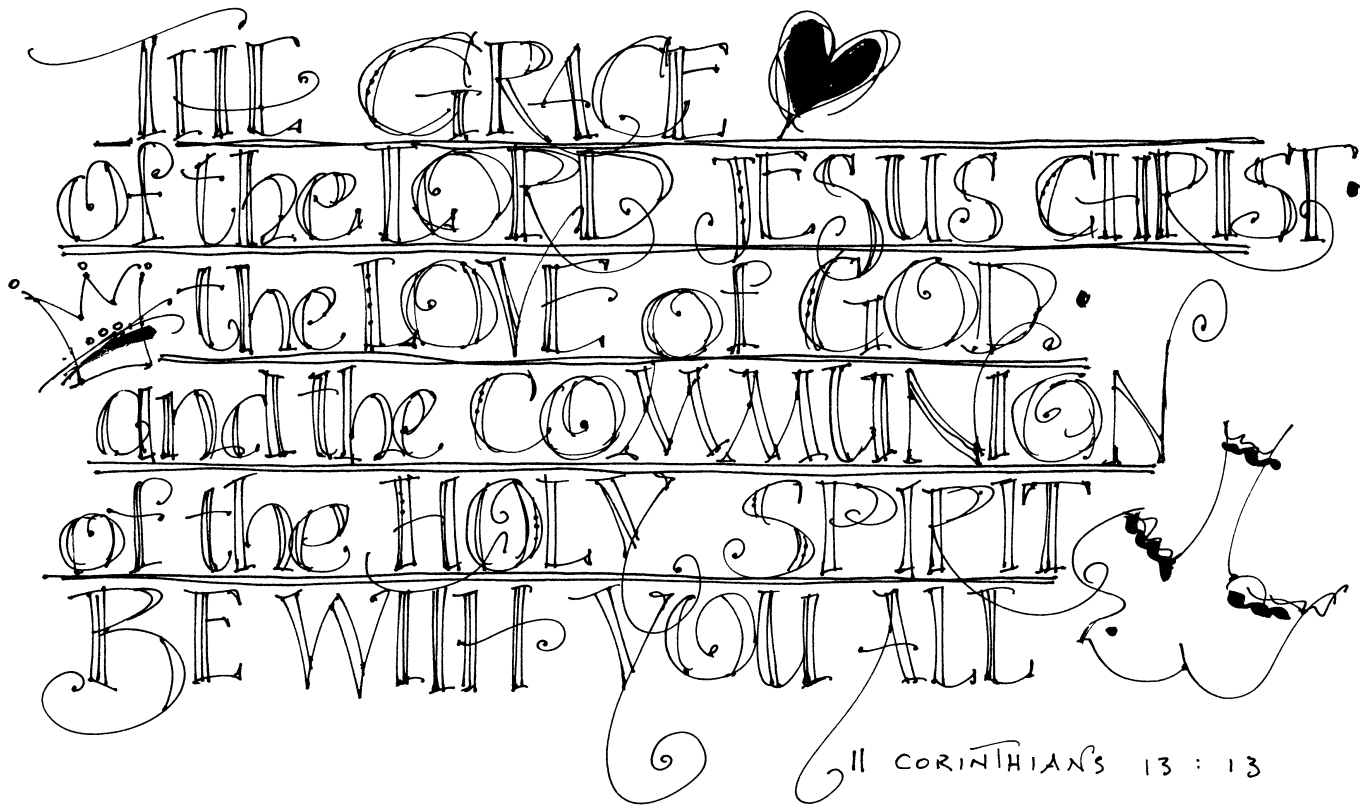 THE GRACE
of the LORD JESUS CHRIST.
the LOVE of GOD.
and the COMMUNION
of the HOLY SPIRIT
BE WITH YOU ALL
II CORINTHIANS 13 : 13